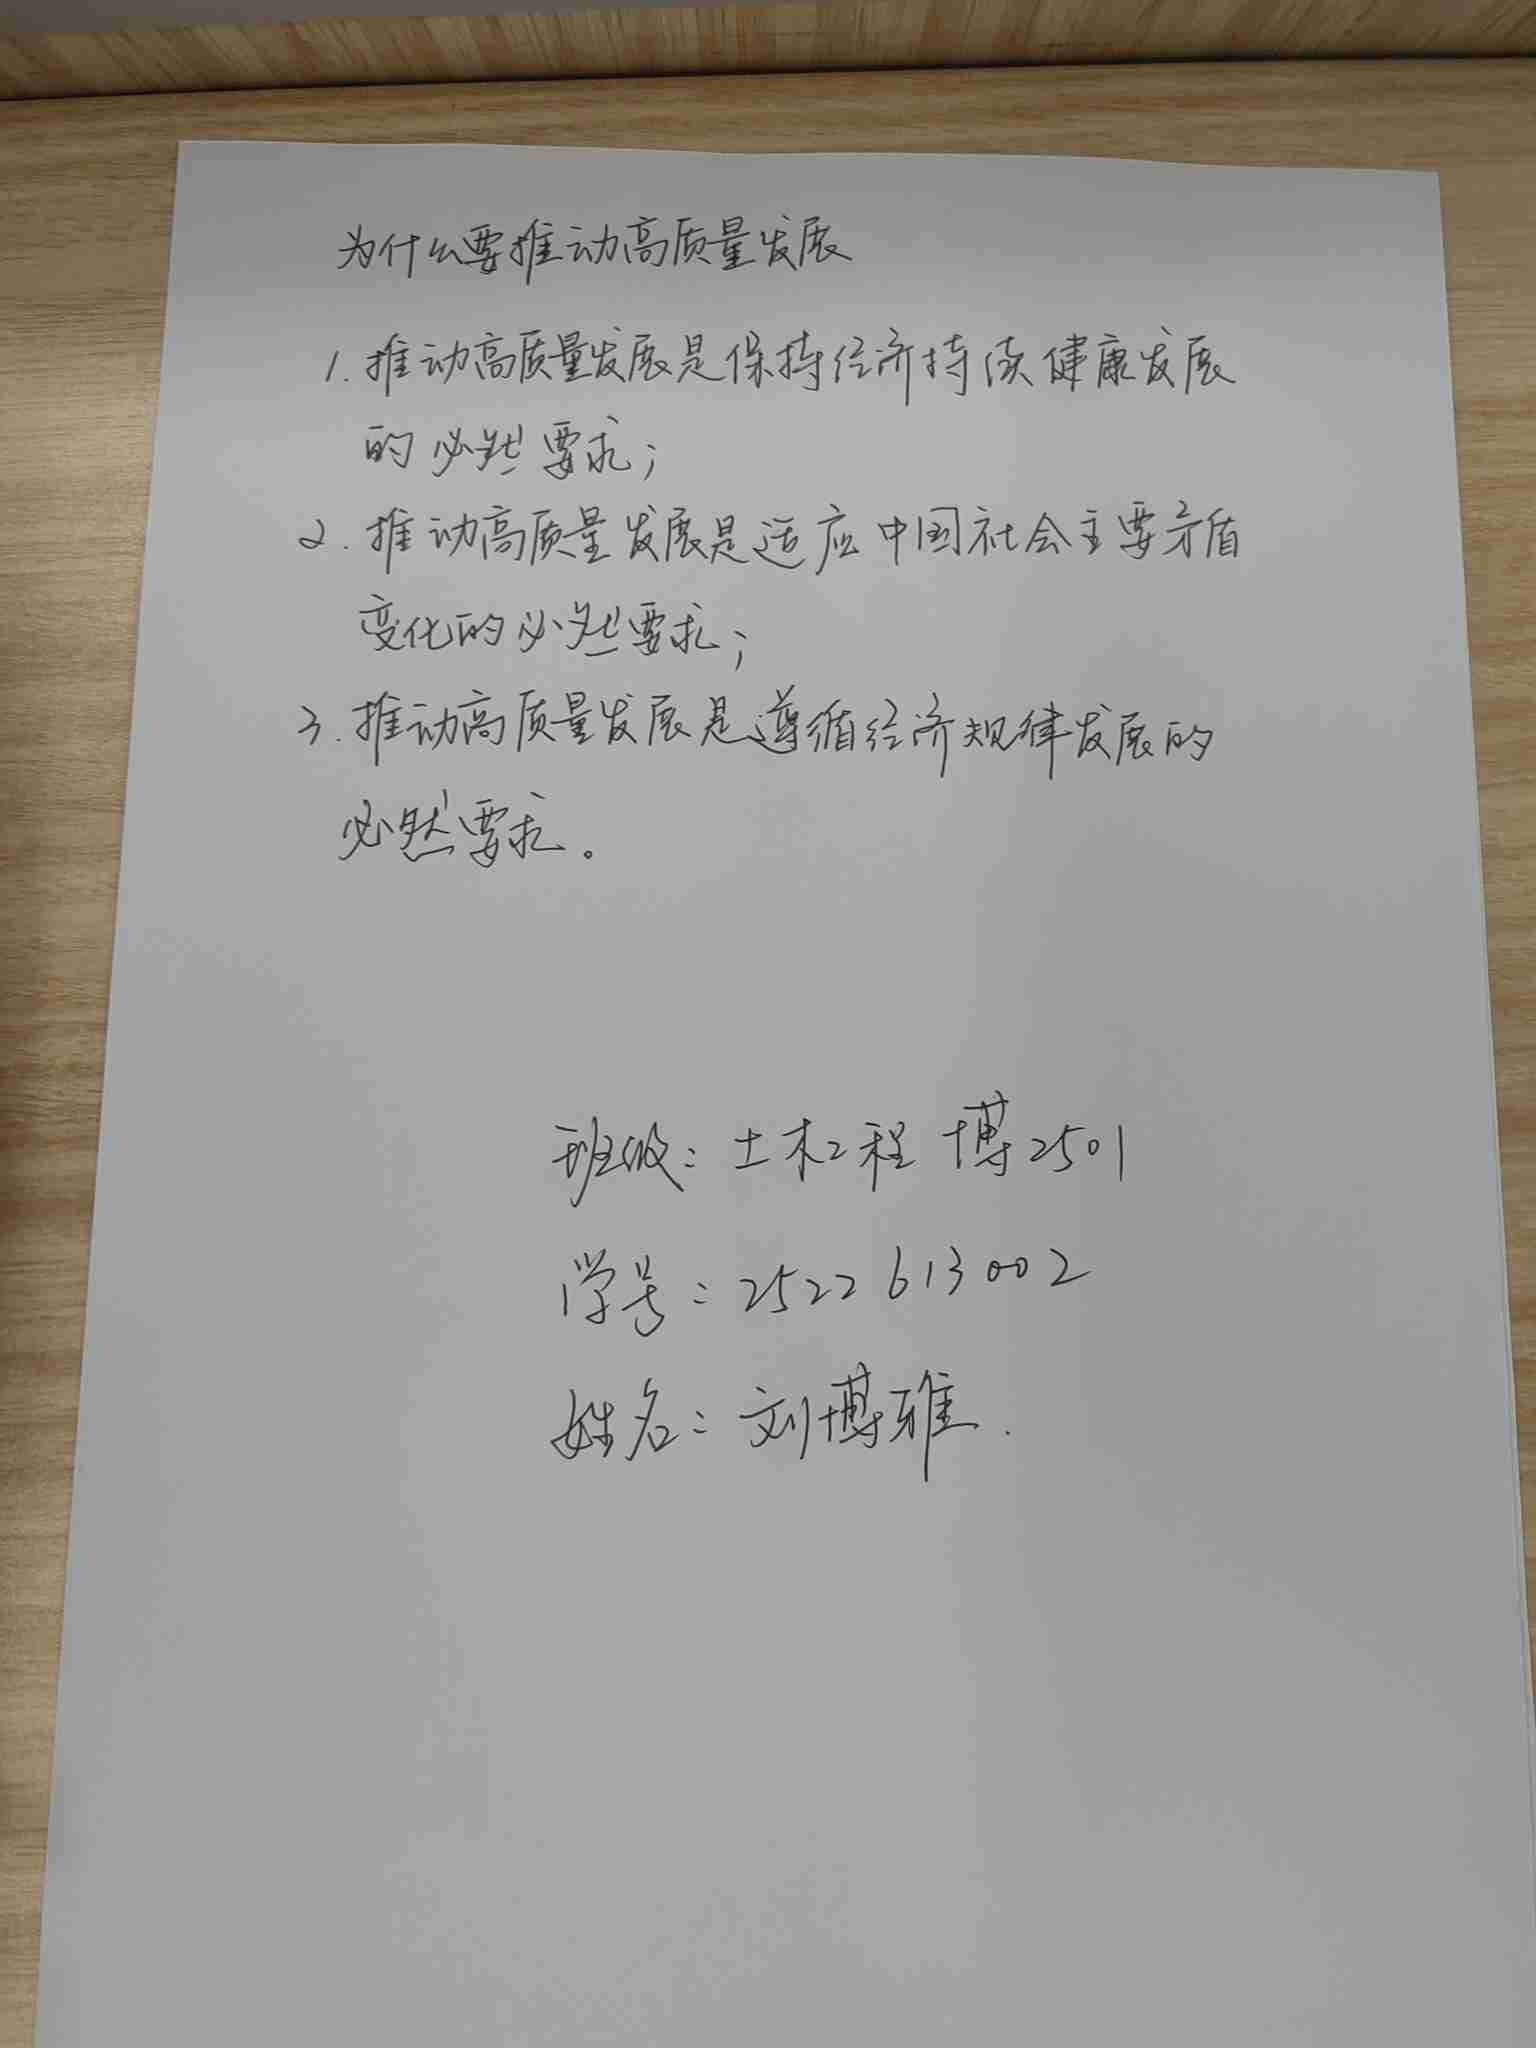 为什么要推动高质量发展
1. 推动高质量发展是保持经济持续健康发展
的必然要求；
2. 推动高质量发展是适应中国社会主要矛盾
变化的必然要求；
3. 推动高质量发展是遵循经济规律发展的
必然要求。
班级：土木工程 博2501
学号：2522613002
姓名：刘博雅.